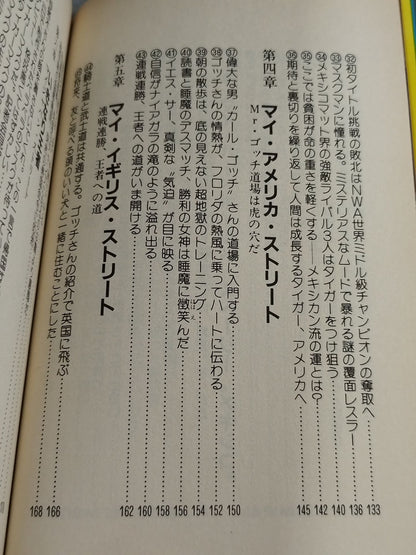 ㉜初タイトル挑戦の敗北はNWA世界ミドル級チャンピオンの奪取へ……133
㉝マスクマンに憧れる。ミステリアスなムードで暴れる謎の覆面レスラー……136
㉞メキシコマット界の強敵ライバル3人はタイガーをつけ狙う……140
㉟ここでは貧困が命の重さを軽くする――メキシカン流の運とは?……142
㊱期待と裏切りを繰り返して人間は成長するタイガー、アメリカへ……145
第四章 マイ・アメリカ・ストリート
Mr・ゴッチ道場は虎の穴だ
㊲偉大な男“カール・ゴッチ”さんの道場に入門する……150
㊳ゴッチさんの情熱が、フロリダの熱風に乗ってハートに伝わる……152
㊴朝の散歩は、底の見えない超地獄のトレーニング……154
㊵読書と睡魔のデスマッチ、勝利の女神は睡魔に微笑んだ……156
㊶イエス・サー、真剣な“気迫”が目に映る……158
㊷自信がナイアガラの滝のように溢れ出る……160
㊸連戦連勝、王者への道がいま開ける……162
第五章 マイ・イギリス・ストリート
連戦連勝、王者への道
㊹騎士道と武士道は共通する。ゴッチさんの紹介で英国に飛ぶ……166
友と呼べる頭のいい犬と一緒に住むことにした……168